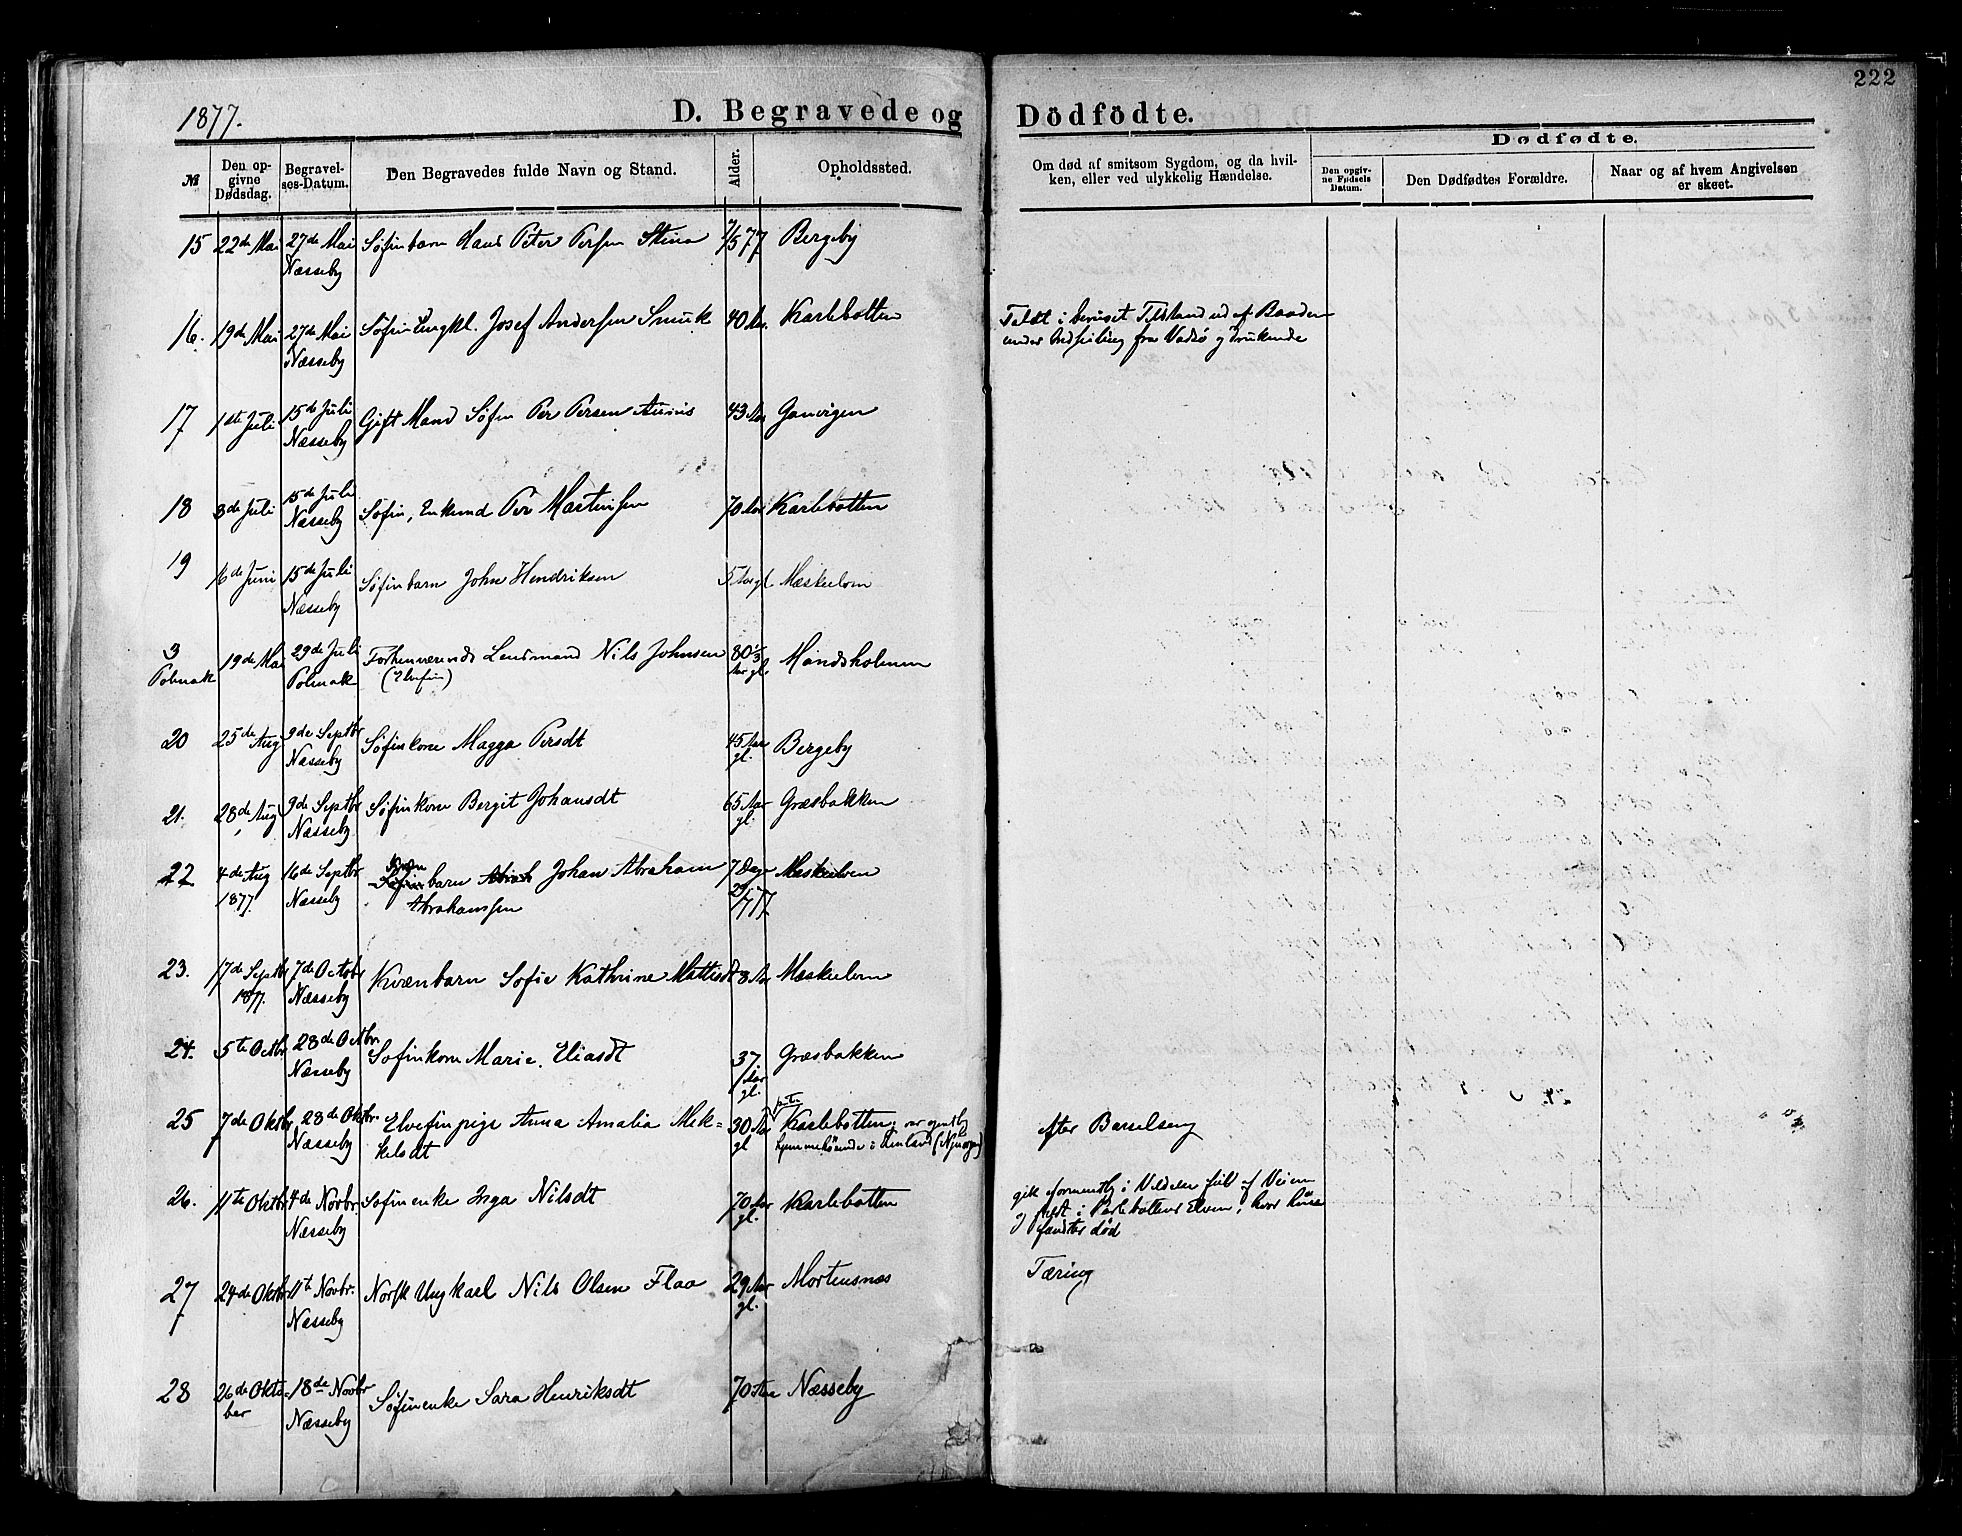 222
1877.
D. Begravede og Dödfödte.
Dødfødte.
№
Den op-
givne
Dødsdag.
Begravel-
ses-Datum.
Den Begravedes fulde Navn og Stand.
Alder.
Opholdssted.
Om død af smitsom Sygdom, og da hvil-
ken, eller ved ulykkelig Hændelse.
Den opgiv-
ne Fødsels
Datum.
Den Dødfødtes Forældre.
Naar og af hvem Angivelsen
er skeet.
15 22de Mai 27de Mai Søfinbarn Hans Peter Persen Stina 7/5 77 Bergeby
Næsseby
16. 19de Mai 27de Mai Søfin Ungkl. Josef Andersen Smuk 40 Aar. Karlebotten
Næsseby
Faldt i beruset Tilstand ud af Baaden
under Indseiling fra Vadsø og druknede
17 1ste Juli 15de Juli Gift Mand Søfin Per Persen 43 Aar Ganvigen
Næsseby
18 3de Juli 15de Juli Søfin, Enkemd Per Martinsen 70 Aar Karlebotten
Næsseby
19 6de Juni 15de Juli Søfinbarn John Hendriksen 5 Aar gl Mæskelven
Næsseby
3 19de Mai 29de Juli Forhenværende Lensmand Nils Johnsen 80 1/3 Mandsholmen
Polmak Polmak (Elvfin) Aar gl.
20 25de Aug 9de Septbr Søfinkone Magga Persdt 45 Aar Bergeby
Næsseby gl.
21. 28de Aug 9de Septbr Søfinkone Bergit Johansdt 65 Aar Græsbakken
Næsseby gl.
22 4de Aug 16de Septbr Kvæn barn Johan Abraham 7 Dage Mæskelven
1877. Næsseby Abrahamsen 29/7 77.
23. 17de Septbr 7de Octobr Kvænbarn Sofie Kathrine Mattisdt 8 Aar Mæskelven
1877. Næsseby
24. 5te Octbr 28de Octbr. Søfinkone Marie Eliasdt 37 Græsbakken
Næsseby Aar
gl.
25 7de Oktbr 28de Oktbr. Elvefinpige Anna Amalia Mik= 30 Aar Karlebotten, var egentlig
Næsseby kelsdt gl hjemmehørende i
efter Barselseng
26. 11te Oktbr 4de Novbr. Søfinenke Inga Nilsdt 70 Aar Karlebotten
Næsseby gl.
gik formentlig i Vildelse feil af Veien
og faldt i Karlebottens Elven, hvor hun
fandtes død
27 24de Oktbr 11te Novbr. Norsk Ungkarl Nils Olsen Flaa 29 Aar Mortensnæs
Næsseby gl.
Tæring
28 26de Okto- 18de Novbr Søfinenke Sara Henriksdt 70 Aar Næsseby
ber Næsseby